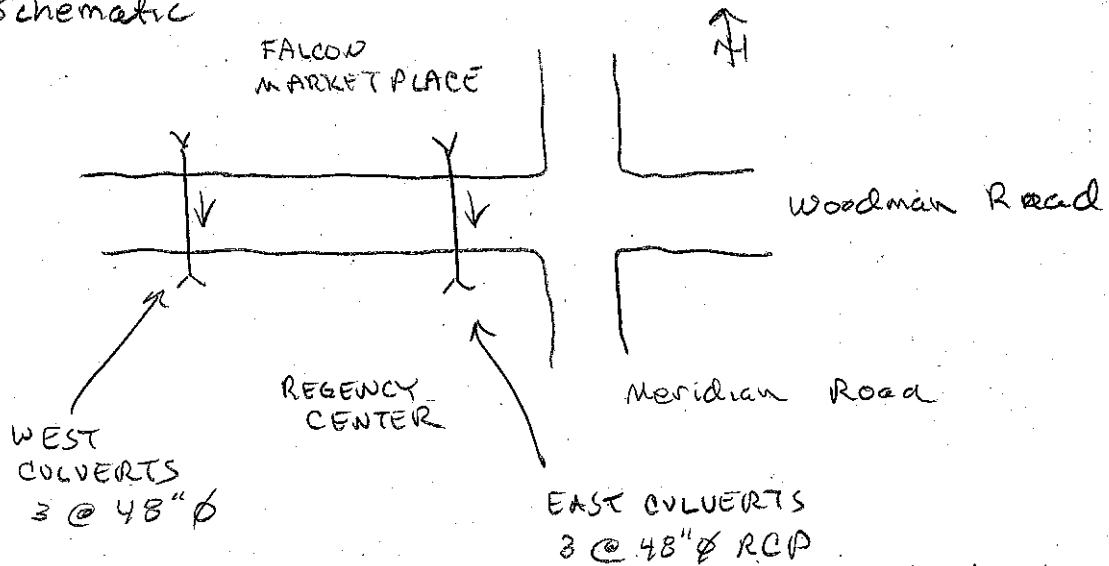 Schematic
N
FALCON
MARKETPLACE
Woodman Road
REGENCY
CENTER
Meridian Road
WEST
CULVERTS
3 @ 48"Ø
EAST CULVERTS
3 @ 48"Ø RCP